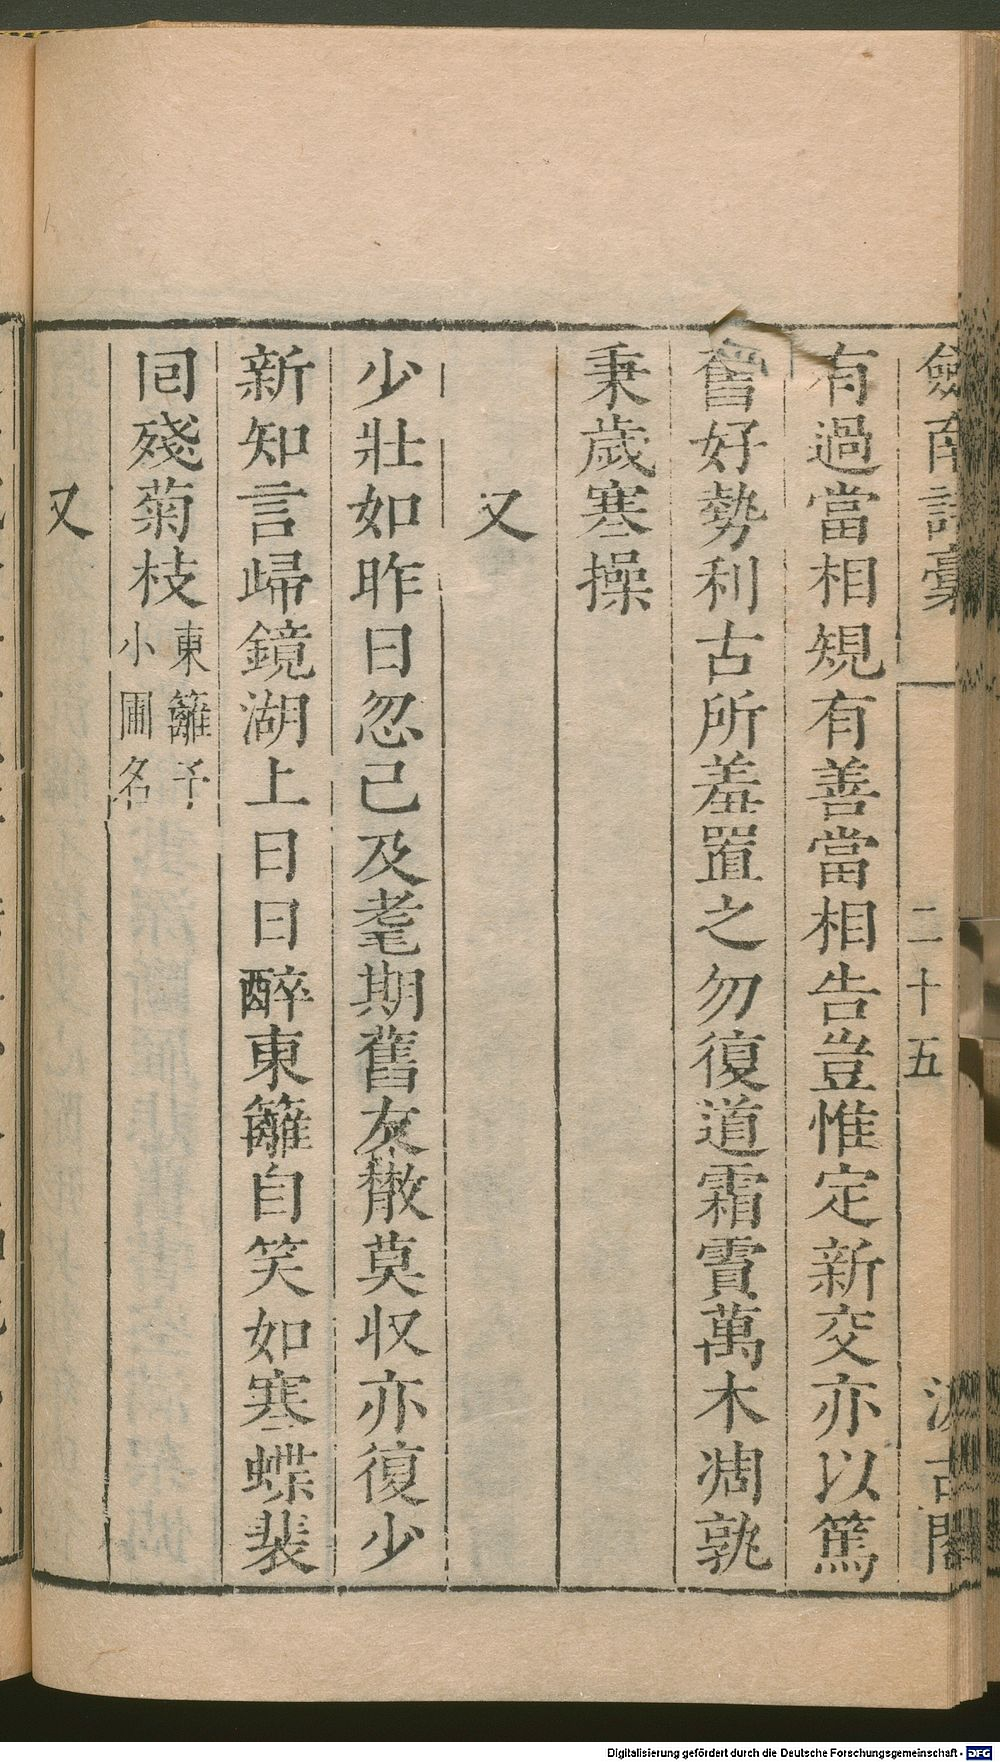 劍南詩稾
二十五
汲古閣
有過當相規有善當相告豈惟定新交亦以篤
舊好勢利古所羞置之勿復道霜霣萬木凋孰
秉歲寒操
又
少壯如昨日忽已及耄期舊友散莫収亦復少
新知言歸鏡湖上日日醉東籬自笑如寒蝶裴
回殘菊枝東籬予
小圃名
又
Digitalisierung gefördert durch die Deutsche Forschungsgemeinschaft - DFG